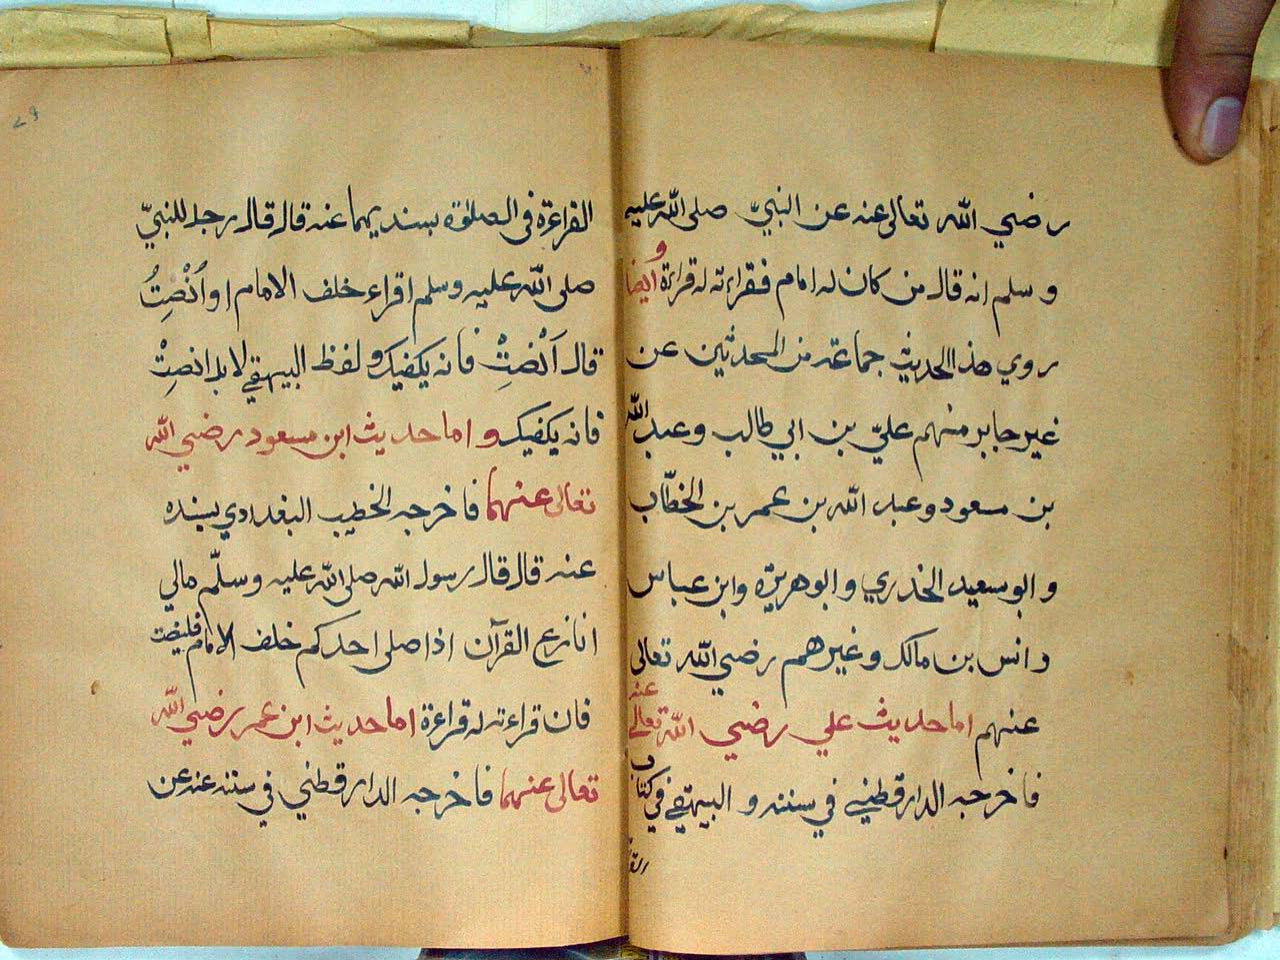 رضي الله تعالى عنه عن النبيّ صلى الله عليه
وسلم انه قال من كان له امام فقراءته له قراءة وايضا
روي هذ الحديث جماعة من المحدثين عن
غير جابر منهم عليّ بن ابي طالب وعبد الله
بن مسعود وعبد الله بن عمر بن الخطّاب
وابو سعيد الخدري وابو هريرة وابن عباس
وانس بن مالك وغيرهم رضي الله تعالى
عنهم اما حديث علي رضي الله تعالى عنه
فاخرجه الدارقطني في سننه والبيهقي في كتاب
القراءة في الصلوة بسنديهما عنه قال قال رجل للنبيّ
صلى الله عليه وسلم اقراء خلف الامام او اُنْصِتُ
قال اَنْصِتْ فانه يكفيك ولفظ البيهقي لا بل انصِتْ
فانه يكفيك واما حديث ابن مسعود رضي الله
تعالى عنهما فاخرجه الخطيب البغدادي بسنده
عنه قال قال رسول الله صلى الله عليه وسلّم مالي
انازع القرآن اذا صلى احدكم خلف الامام فلينصت
فان قراءته له قراءة اما حديث ابن عمر رضي الله
تعالى عنهما فاخرجه الدارقطني في سننه عنه عن